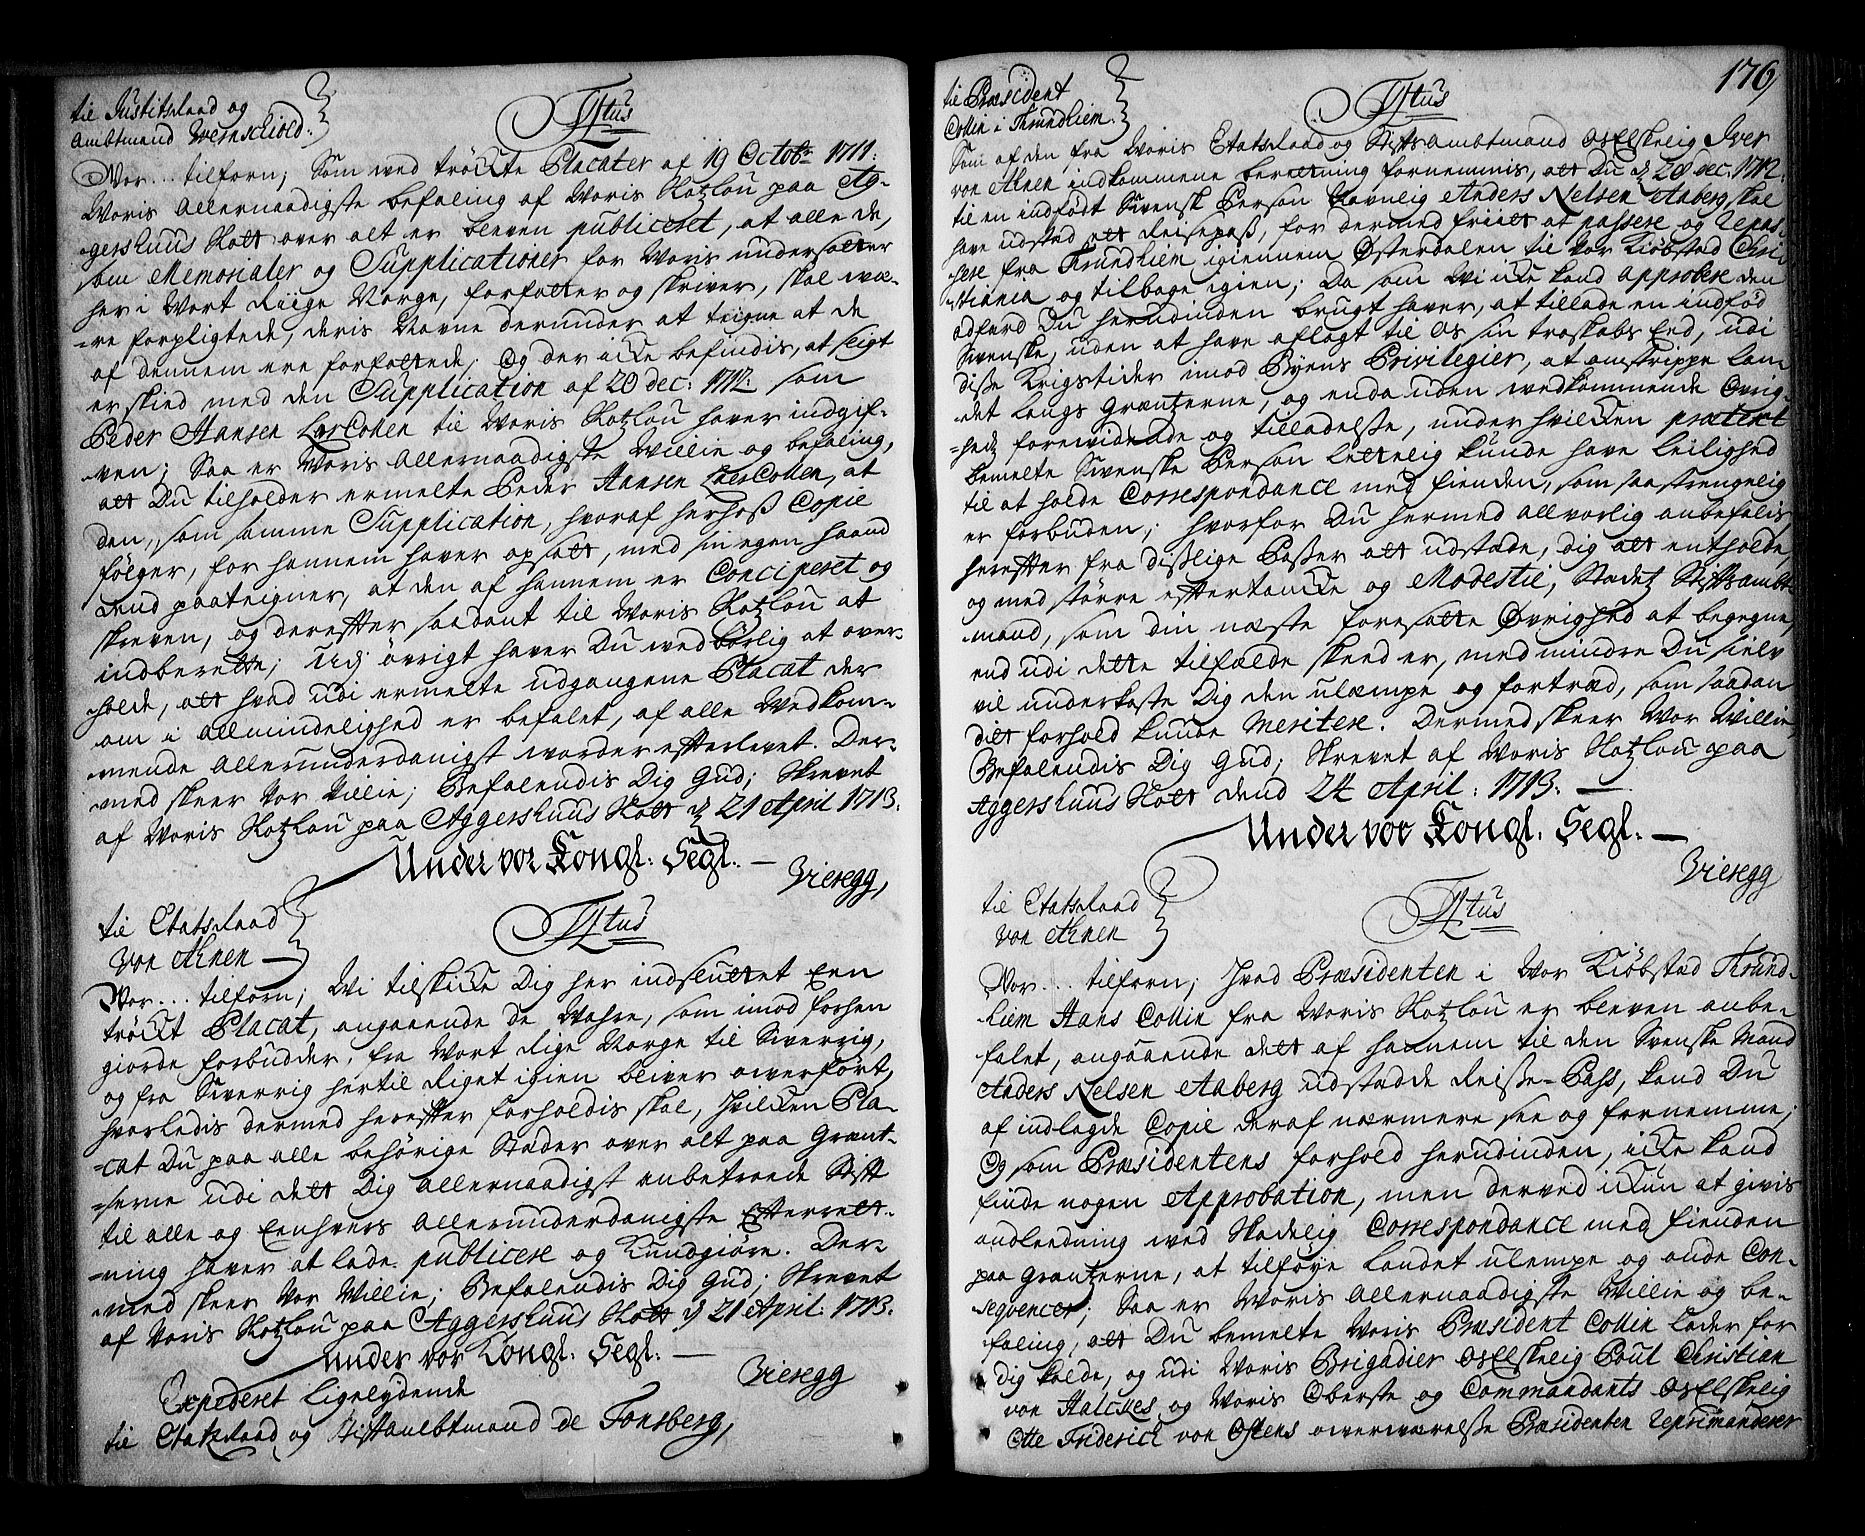 til Justitsraad og
Ambtmand Wernschiold.
Titus
Vor... tilforn; Som ved tröckte Placater af 19 Octobr: 1711:
Woris Allernaadigste befaling af Woris Slotzlou paa Ag-
gershuus Slott over alt er bleven publiceret, at alle de,
som Memorialer og Supplicationer for Woris undersatter
her i Vort Riige Norge, forfatter og skriver, skal væ-
re forpligtede, deris Navne derunder at teigne at de
af dennem ere forfattede; Og der icke befindis, at sligt
er skied med den Supplication af 20 dec: 1712: som
Peder Hansen LerCohen til Woris Slotzlou haver indgif-
ven; Saa er Woris Allernaadigste Willie og befaling,
att Du tilholder ermelte Peder Hansen LerCollen, at
den, som samme Supplication, hvoraf herhoß Copie
følger, for hannem haver opsatt, med sin egen haand
derud paateigner, at den af hannem er Conciperet og
skreven, og derefter saadant til Woris Slotzlou at
indberette; Udj øvrigt haver Du ved börlig at over-
holde, att hvad udi ermelte udgangene Placat der
om i allmindelighed er befalet, af alle Vedkom-
mende Allerunderdanigst vorder efterlevet. Der-
med skeer Vor Villie; Befalendis Dig Gud; Skrevet
af Woris Slotzlou paa Aggershuus Slott d 21 April 1713.
Under vor Kongl: Segl.
Vieregg,
til Etatsraad
von Ahnen
Titus
Vor... tilforn; Wi tilskicke Dig her indsluttet Een
tröckt Placat, angaaende de Wahre, som imod forhen
giorde forbudder, fra Vort Rige Norge til Sverrig,
og fra Sverrig hertil Riget igien bliver overført,
hvorledis dermed herefter forholdis skal, hvilcken Pla-
cat Du paa alle behörige Stæder over alt paa Grænt-
serne udi dett Dig Allernaadigst anbetroede Stift
til alle og Eenhvers Allerunderdanigste Efterrett-
ning haver at lade publicere og Kundgiøre. Der-
med skeer Vor Willie; Befalendis Dig Gud; Skrevet
af Woris Slotzlou paa Aggershuus Slott d 21 April: 1713.
Under vor Kongl: Segl.
Vieregg
Expederet ligelydende
til Etatsraad og Stiftambtmand de Tonsberg,
176
til Præsident
Collin i Thrundhiem.
Titus
Som af den fra Woris Etatsraad og Stiftsambtmand osElskelig Iver
von Ahnen indkommene beretning fornemmis, att Du d 20 dec: 1712:
til en indfödt Svensk Person Navnlig Anders Nelsen Aaberg skal
have udsted ett Reisepaß, for dermed friit at passere og repas-
sere fra Thrundhiem igiennem Østerdalen til Vor Kiøbstad Chri-
stiania og tilbage igien; Da som Wi icke kand approbere den
adfærd Du herudinden brugt haver, at tillade en indfød
Svenske, uden at have aflagt til Os sin troskabs Eed, udi
diße Krigstider imod Byens Privilegier, at omstrippe lan-
det langs Græntzerne, og enda uden vedkommende Øvrig-
heds forevidende og tilladelße, under hvilcken prætext
bemelte Svenske Person lettelig kunde have leilighed
til at holde Correspondance med fienden, som saa strengelig
er forbuden; hvorfor Du hermed allvorlig anbefalis
herefter fra dißlige Paßer att udstæde, dig att entholde,
og med større eftertancke og Modestie, Stædetz Stiftsambt-
mand, som din næste foresatte Øvrighed at begegne,
end udi dette tilfælde skeed er, med mindre Du sielv
vil underkaste Dig den ulæmpe og fortræd, som saadan
dit forhold kunde meritere. Dermed skeer Vor Willie,
Befalendis Dig Gud; Skrevet af Woris Slotzlou paa
Aggershuus Slott dend 24 April: 1713.
Under vor Kongl: Segl.
Vieregg
til Etatsraad
von Ahnen
Titus
Vor... tilforn; Hvad Præsidenten i Vor Kiøbstad Thrund-
hiem Hans Collin fra Woris Slotzlou er bleven anbe-
falet, angaaende dett af hannem til den Svenske Mand
Anders Nelsen Aaberg udstædde Reise-Pass, kand Du
af indlagde Copie deraf nærmere see og fornemme;
Og som Præsidentens forhold herudinden, icke kand
finde nogen Approbation, men derved icun at givis
andleedning ved Skadelig Correspondance med fienden
paa Græntzerne, at tilføye Landet ulempe og onde Con-
seqvencer; Saa er Woris Allernaadigste Willie og be-
faling, att Du bemelte Woris Præsident Collin lader for
dig kalde, og udi Woris Brigadier osElskelig Poul Christian
von Halckes og Woris Oberste og Commandants osElskelig
Otte Friderich von Ostens overværelße Præsidenten reprimanderer